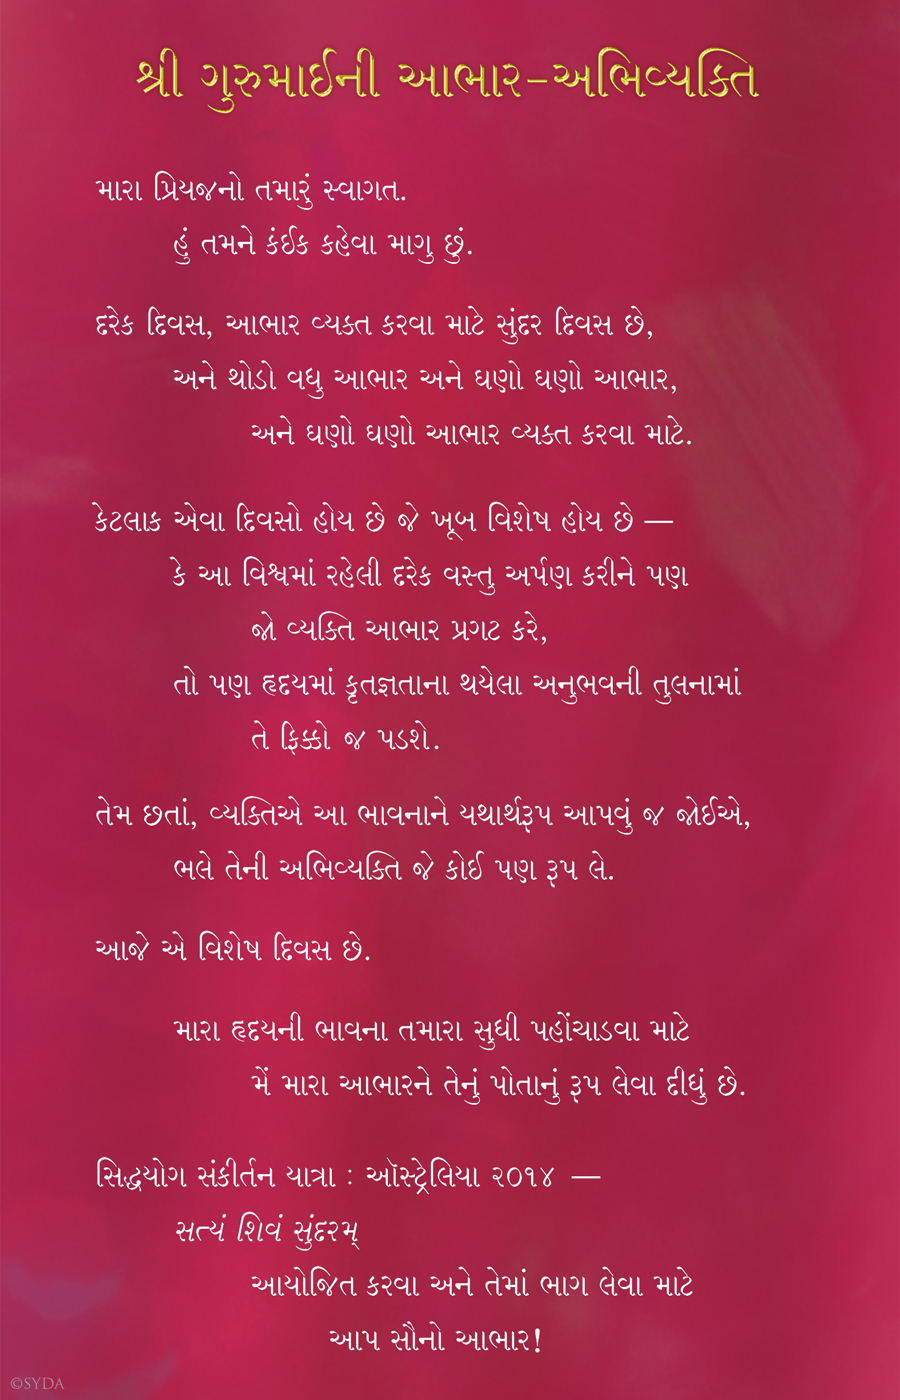 શ્રી ગુરુમાઈની આભાર-અભિવ્યક્તિ
મારા પ્રિયજનો તમારું સ્વાગત.
હું તમને કંઈક કહેવા માગુ છું.
દરેક દિવસ, આભાર વ્યક્ત કરવા માટે સુંદર દિવસ છે,
અને થોડો વધુ આભાર અને ઘણો ઘણો આભાર,
અને ઘણો ઘણો આભાર વ્યક્ત કરવા માટે.
કેટલાક એવા દિવસો હોય છે જે ખૂબ વિશેષ હોય છે —
કે આ વિશ્વમાં રહેલી દરેક વસ્તુ અર્પણ કરીને પણ
જો વ્યક્તિ આભાર પ્રગટ કરે,
તો પણ હૃદયમાં કૃતજ્ઞતાના થયેલા અનુભવની તુલનામાં
તે ફિક્કો જ પડશે.
તેમ છતાં, વ્યક્તિએ આ ભાવનાને યથાર્થરૂપ આપવું જ જોઈએ,
ભલે તેની અભિવ્યક્તિ જે કોઈ પણ રૂપ લે.
આજે એ વિશેષ દિવસ છે.
મારા હૃદયની ભાવના તમારા સુધી પહોંચાડવા માટે
મેં મારા આભારને તેનું પોતાનું રૂપ લેવા દીધું છે.
સિદ્ધયોગ સંકીર્તન યાત્રા : ઑસ્ટ્રેલિયા ૨૦૧૪ —
સત્યં શિવં સુંદરમ્
આયોજિત કરવા અને તેમાં ભાગ લેવા માટે
આપ સૌનો આભાર!
©SYDA